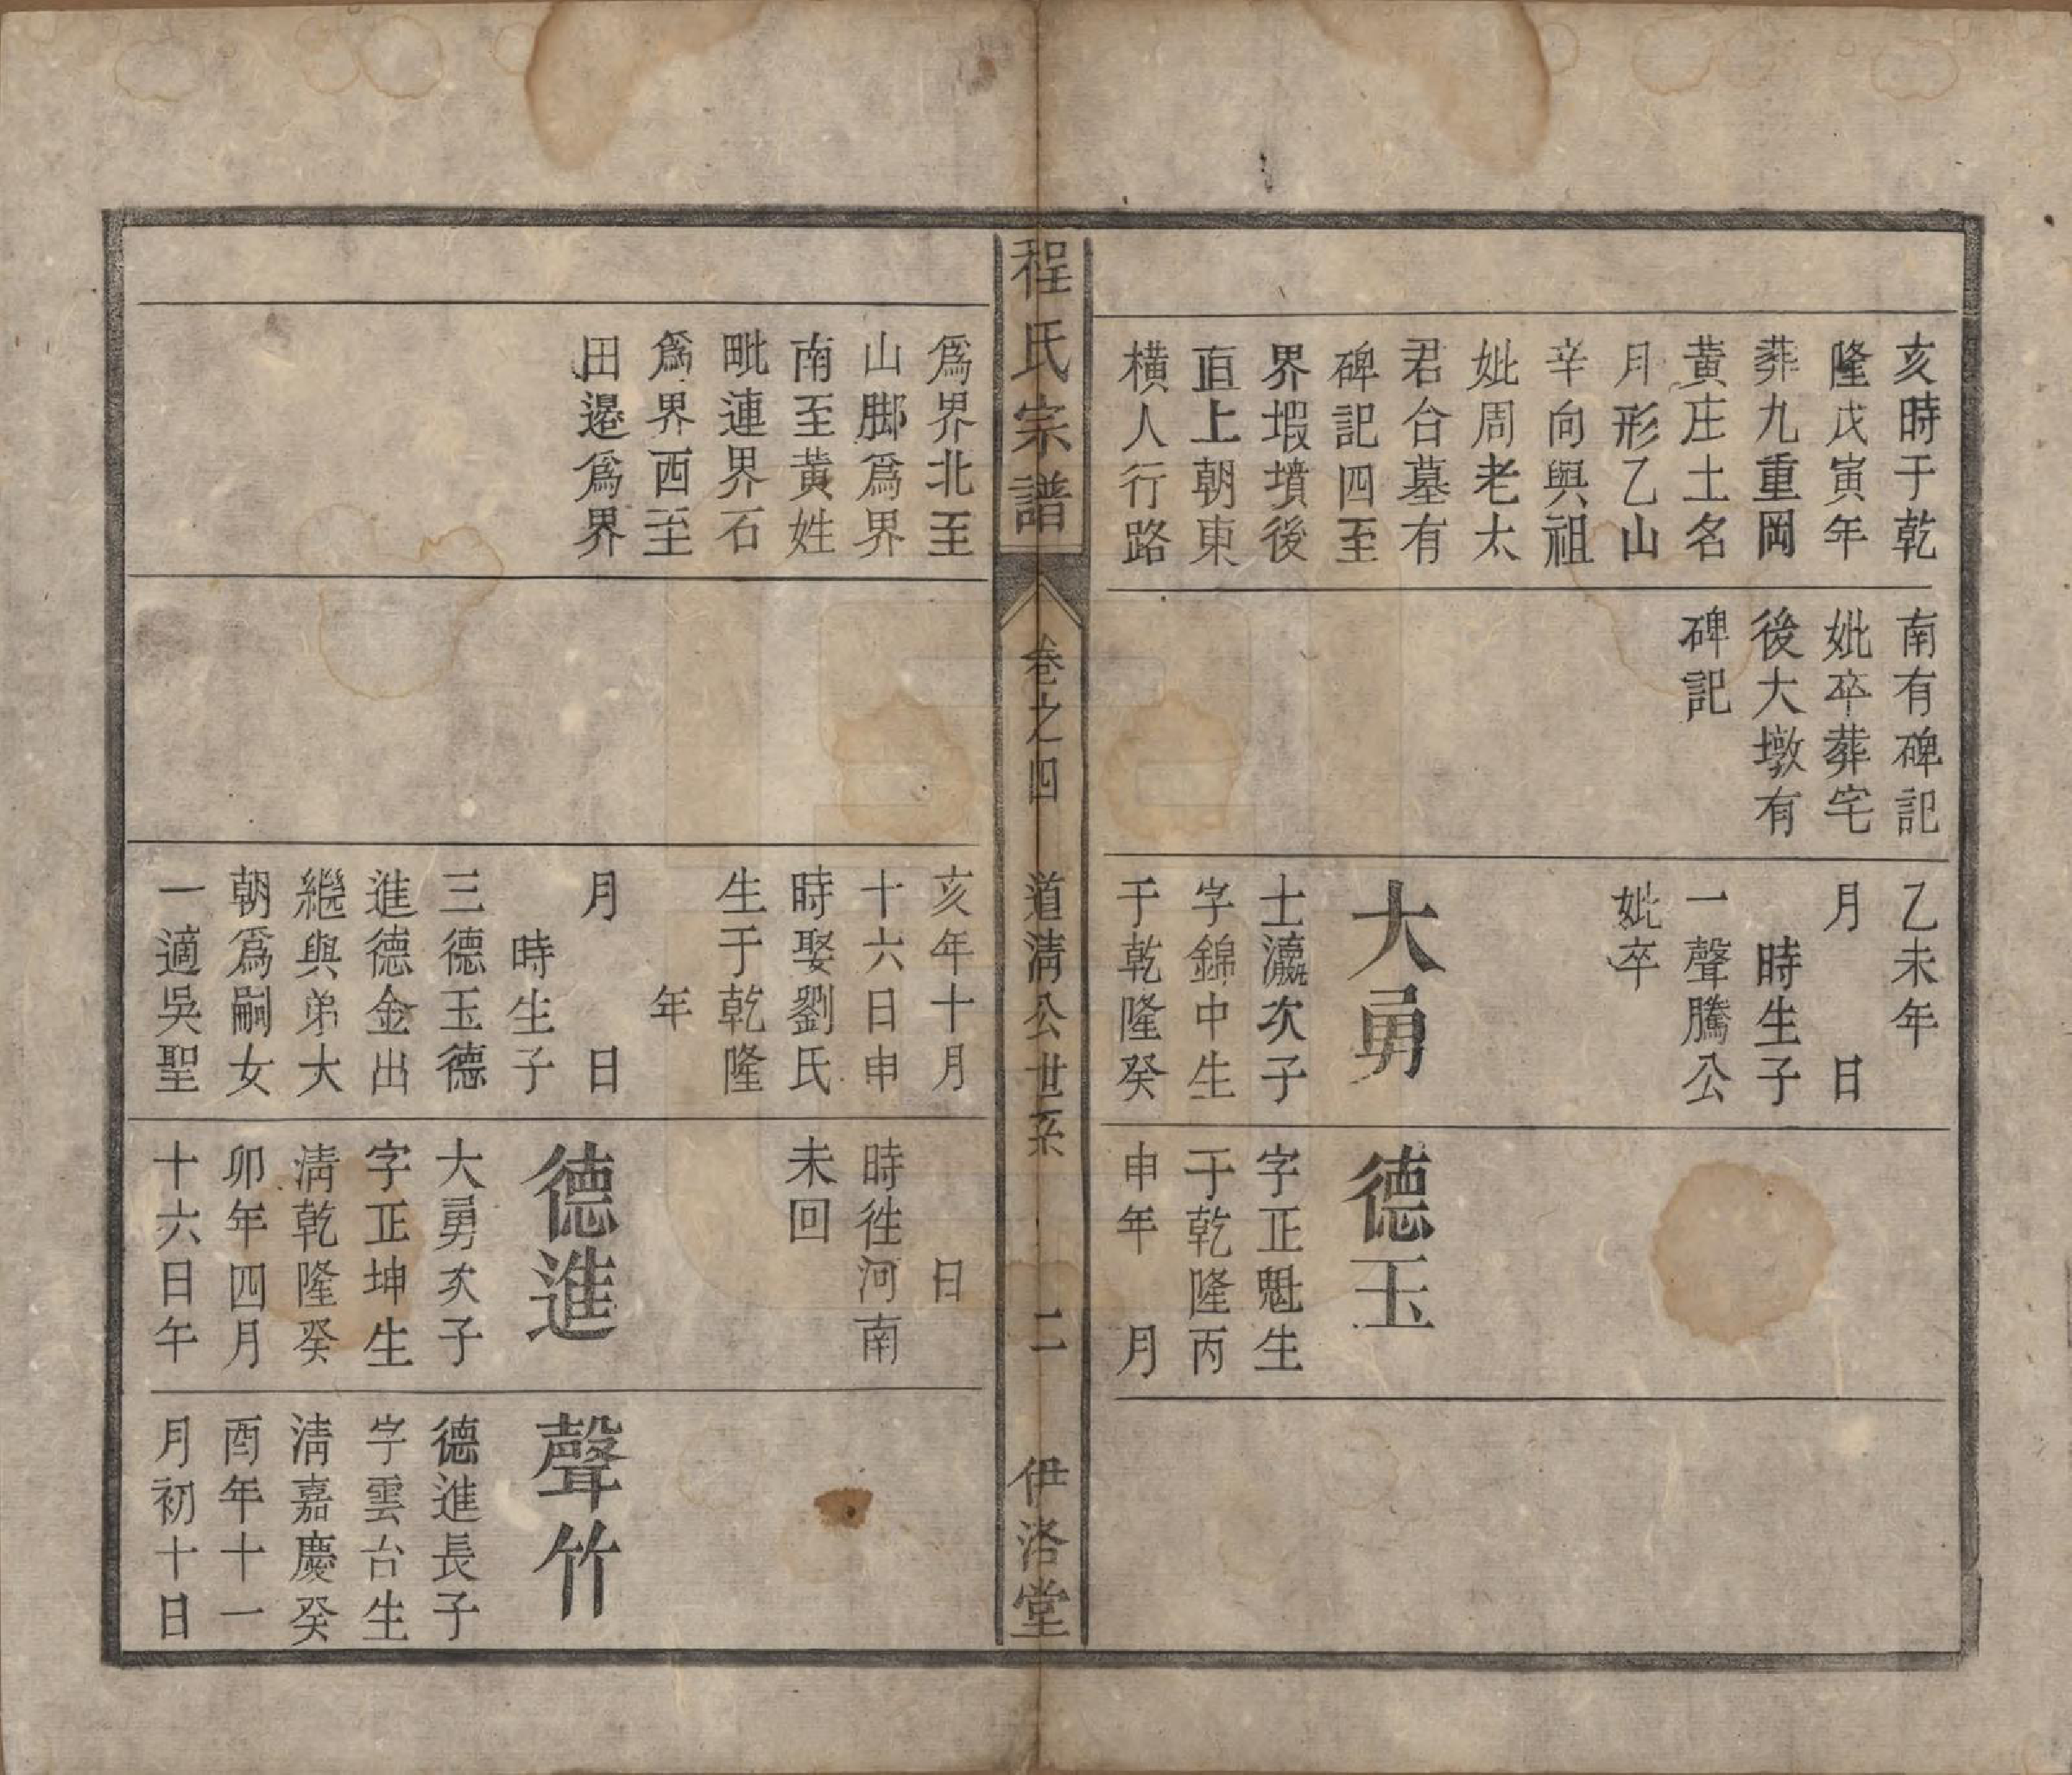 亥時于乾
隆戊寅年
葬九重岡
黃庄土名
月形乙山
辛向與祖
妣周老太
君合墓有
碑記四至
界塅墳後
直上朝東
橫人行路
南有碑記
妣卒葬宅
後大墩有
碑記
乙未年
月 日
時生子
一聲騰公
妣卒
大勇
士瀛次子
字錦中生
于乾隆癸
德玉
字正魁生
于乾隆丙
申年 月
程氏宗譜 卷之四 道清公世系 二 伊洛堂
爲界北至
山脚爲界
南至黃姓
毗連界石
爲界西至
田邊爲界
亥年十月
十六日申
時娶劉氏
生于乾隆
年
月 日
時生子
三德玉德
進德金出
繼與弟大
朝爲嗣女
一適吳聖
日
時徃河南
未回
德進
大勇次子
字正坤生
清乾隆癸
卯年四月
十六日午
聲竹
德進長子
字雲台生
清嘉慶癸
酉年十一
月初十日